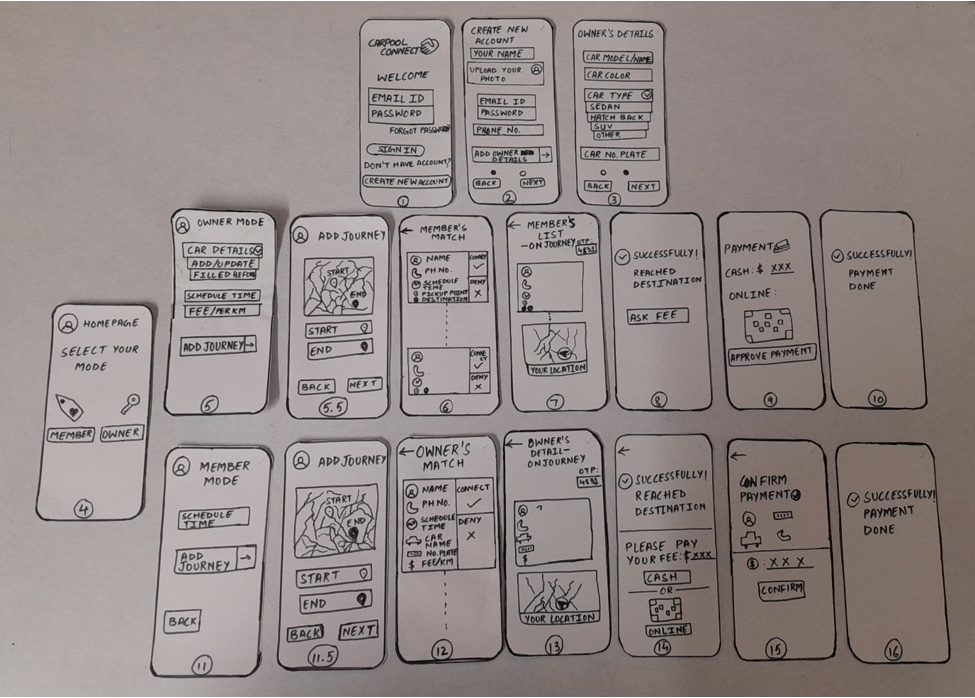 CARPOOL
CONNECT
WELCOME
EMAIL ID
PASSWORD
FORGOT PASSWORD
SIGN IN
DON'T HAVE ACCOUNT?
CREATE NEW ACCOUNT
1
CREATE NEW
ACCOUNT
YOUR NAME
UPLOAD YOUR
PHOTO
EMAIL ID
PASSWORD
PHONE NO.
ADD OWNER
DETAILS →
BACK NEXT
2
OWNER'S DETAILS
CAR MODEL/NAME
CAR COLOR
CAR TYPE
SEDAN
HATCH BACK
SUV
OTHER
CAR NO. PLATE
BACK NEXT
3
HOMEPAGE
SELECT YOUR
MODE
MEMBER OWNER
4
OWNER MODE
CAR DETAILS
ADD/UPDATE
FILLED BEFORE
SCHEDULE TIME
FEE/PER KM
ADD JOURNEY →
5
ADD JOURNEY
START
END
START
END
BACK NEXT
5.5
← MEMBER'S
MATCH
NAME
PH NO.
SCHEDULE
TIME
PICKUP POINT
DESTINATION
CONNECT
✓
DENY
X
CONNE
CT
✓
DENY
X
6
← MEMBER'S
LIST
-ON JOURNEY
OTP:
YOUR LOCATION
7
SUCCESSFULLY!
REACHED
DESTINATION
ASK FEE
8
PAYMENT
CASH: $ XXX
ONLINE:
APPROVE PAYMENT
9
SUCCESSFULLY!
PAYMENT
DONE
10
MEMBER
MODE
SCHEDULE
TIME
ADD
JOURNEY →
BACK
11
ADD JOURNEY
START
END
START
END
BACK NEXT
11.5
← OWNER'S
MATCH
NAME
PH NO.
SCHEDULE
TIME
CAR
NAME
NO. PLATE
$ FEE/KM
CONNECT
✓
DENY
X
12
← OWNER'S
DETAIL-
-ON JOURNEY
OTP:
$
YOUR LOCATION
13
←
SUCCESSFULLY!
REACHED
DESTINATION
PLEASE PAY
YOUR FEE: $ XXX
CASH
-OR-
ONLINE
14
←
CONFIRM
PAYMENT
$ : X X X
CONFIRM
15
SUCCESSFULLY!
PAYMENT
DONE
16